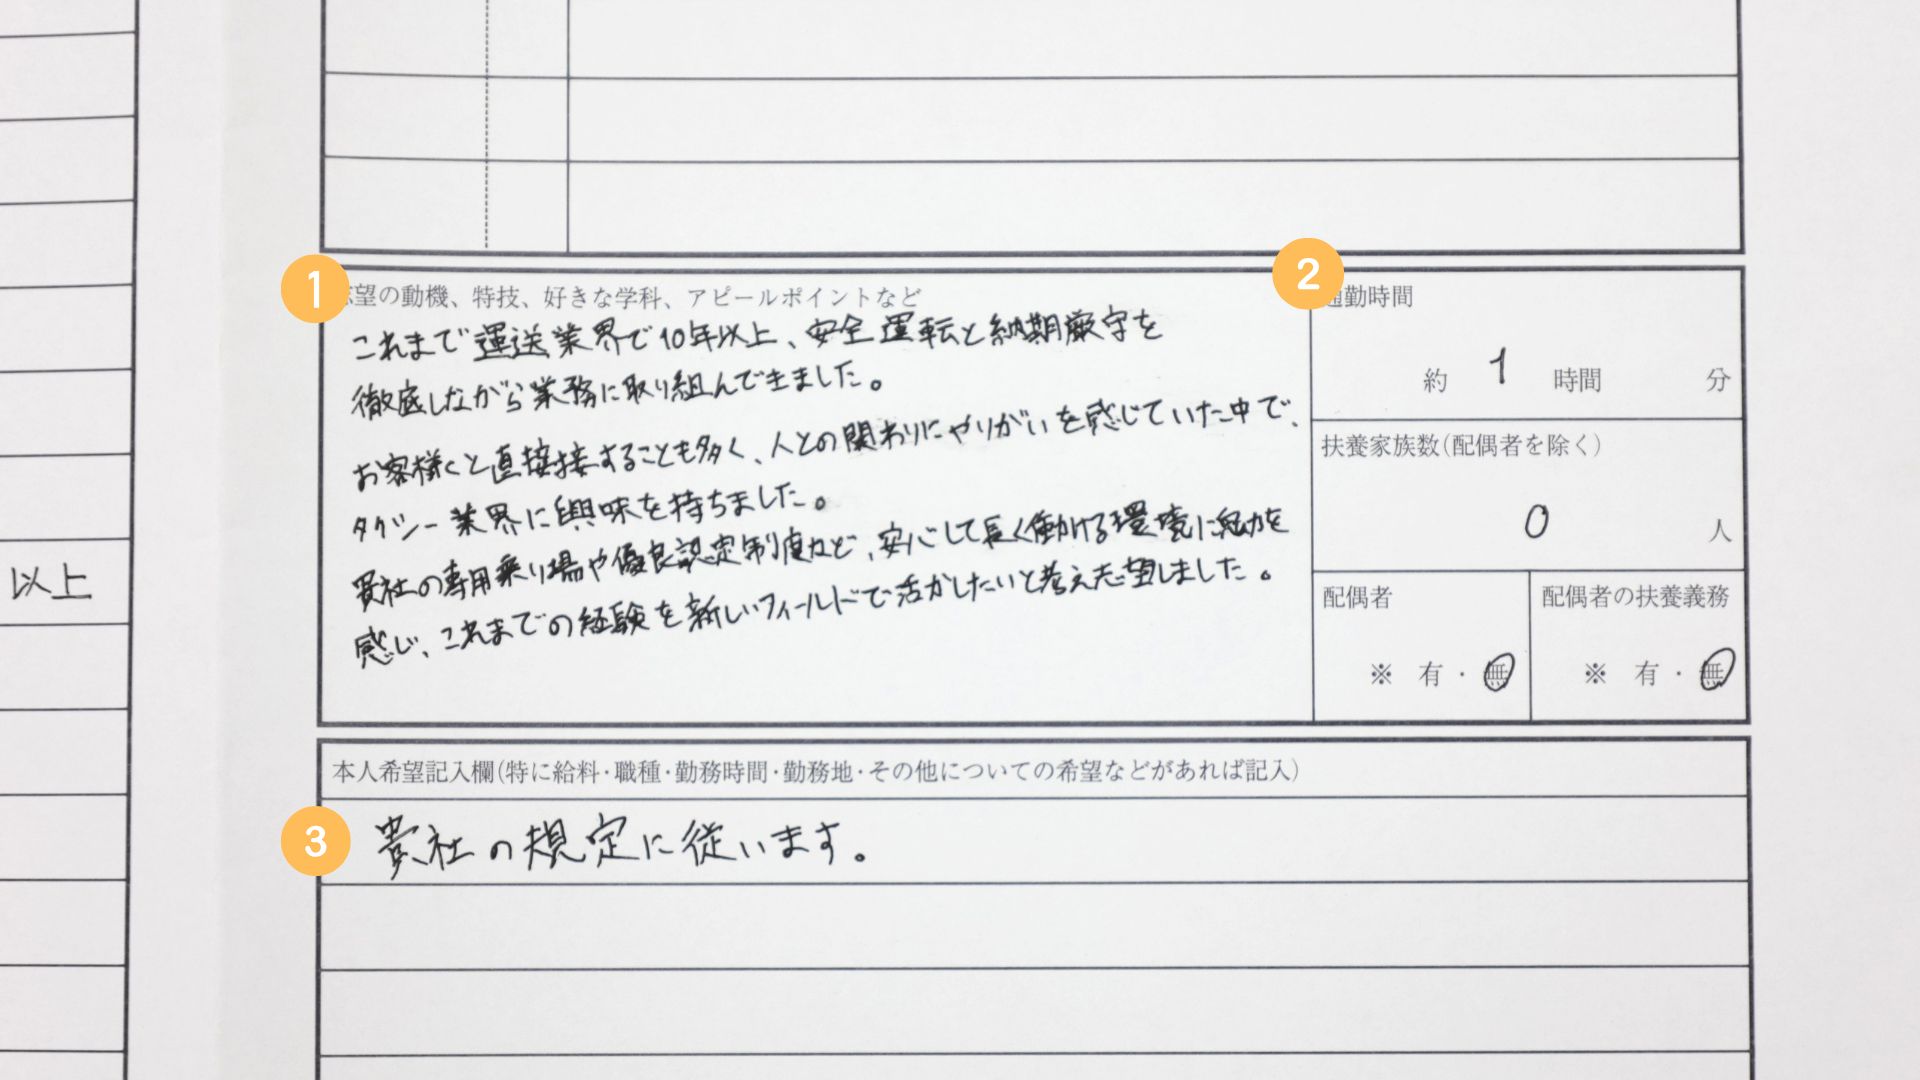 以上
1
望の動機、特技、好きな学科、アピールポイントなど
これまで運送業界で10年以上、安全運転と納期厳守を
徹底しながら業務に取り組んできました。
お客様と直接接することも多く、人との関わりにやりがいを感じていた中で、
タクシー業界に興味を持ちました。
貴社の専用乗り場や優良認定制度など、安心して長く働ける環境に魅力を
感じ、これまでの経験を新しいフィールドで活かしたいと考え志望しました。
2
通勤時間
約 1 時間 分
扶養家族数(配偶者を除く)
0 人
配偶者
※ 有・無
配偶者の扶養義務
※ 有・無
本人希望記入欄(特に給料・職種・勤務時間・勤務地・その他についての希望などがあれば記入)
3
貴社の規定に従います。